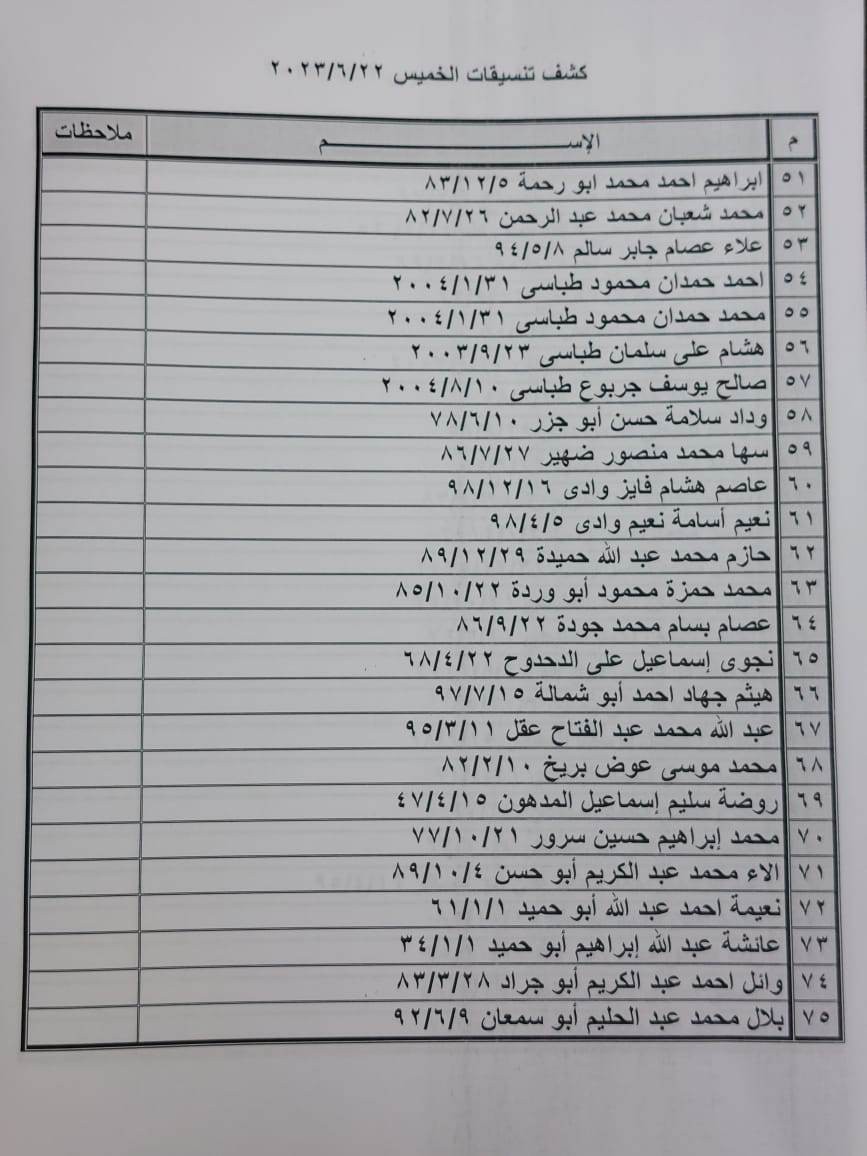 كشف تنسيقات الخميس ٢٠٢٣/٦/٢٢
م الإســـــــــــــــــــــم ملاحظات
٥١ ابراهيم احمد محمد ابو رحمة ٨٣/١٢/٥
٥٢ محمد شعبان محمد عبد الرحمن ٨٢/٧/٢٦
٥٣ علاء عصام جابر سالم ٩٤/٥/٨
٥٤ احمد حمدان محمود طباسى ٢٠٠٤/١/٣١
٥٥ محمد حمدان محمود طباسى ٢٠٠٤/١/٣١
٥٦ هشام على سلمان طباسى ٢٠٠٣/٩/٢٣
٥٧ صالح يوسف جربوع طباسى ٢٠٠٤/٨/١٠
٥٨ وداد سلامة حسن أبو جزر ٧٨/٦/١٠
٥٩ سها محمد منصور ضهير ٨٦/٧/٢٧
٦٠ عاصم هشام فايز وادى ٩٨/١٢/١٦
٦١ نعيم أسامة نعيم وادى ٩٨/٤/٥
٦٢ حازم محمد عبد الله حميدة ٨٩/١٢/٢٩
٦٣ محمد حمزة محمود أبو وردة ٨٥/١٠/٢٢
٦٤ عصام بسام محمد جودة ٨٦/٩/٢٢
٦٥ نجوى إسماعيل على الدحدوح ٦٨/٤/٢٢
٦٦ هيثم جهاد احمد أبو شمالة ٩٧/٧/١٥
٦٧ عبد الله محمد عبد الفتاح عقل ٩٥/٣/١١
٦٨ محمد موسى عوض بريخ ٨٢/٢/١٠
٦٩ روضة سليم إسماعيل المدهون ٤٧/٤/١٥
٧٠ محمد إبراهيم حسين سرور ٧٧/١٠/٢١
٧١ الاء محمد عبد الكريم أبو حسن ٨٩/١٠/٤
٧٢ نعيمة احمد عبد الله أبو حميد ٦١/١/١
٧٣ عائشة عبد الله إبراهيم أبو حميد ٣٤/١/١
٧٤ وائل احمد عبد الكريم أبو جراد ٨٣/٣/٢٨
٧٥ بلال محمد عبد الحليم أبو سمعان ٩٢/٦/٩